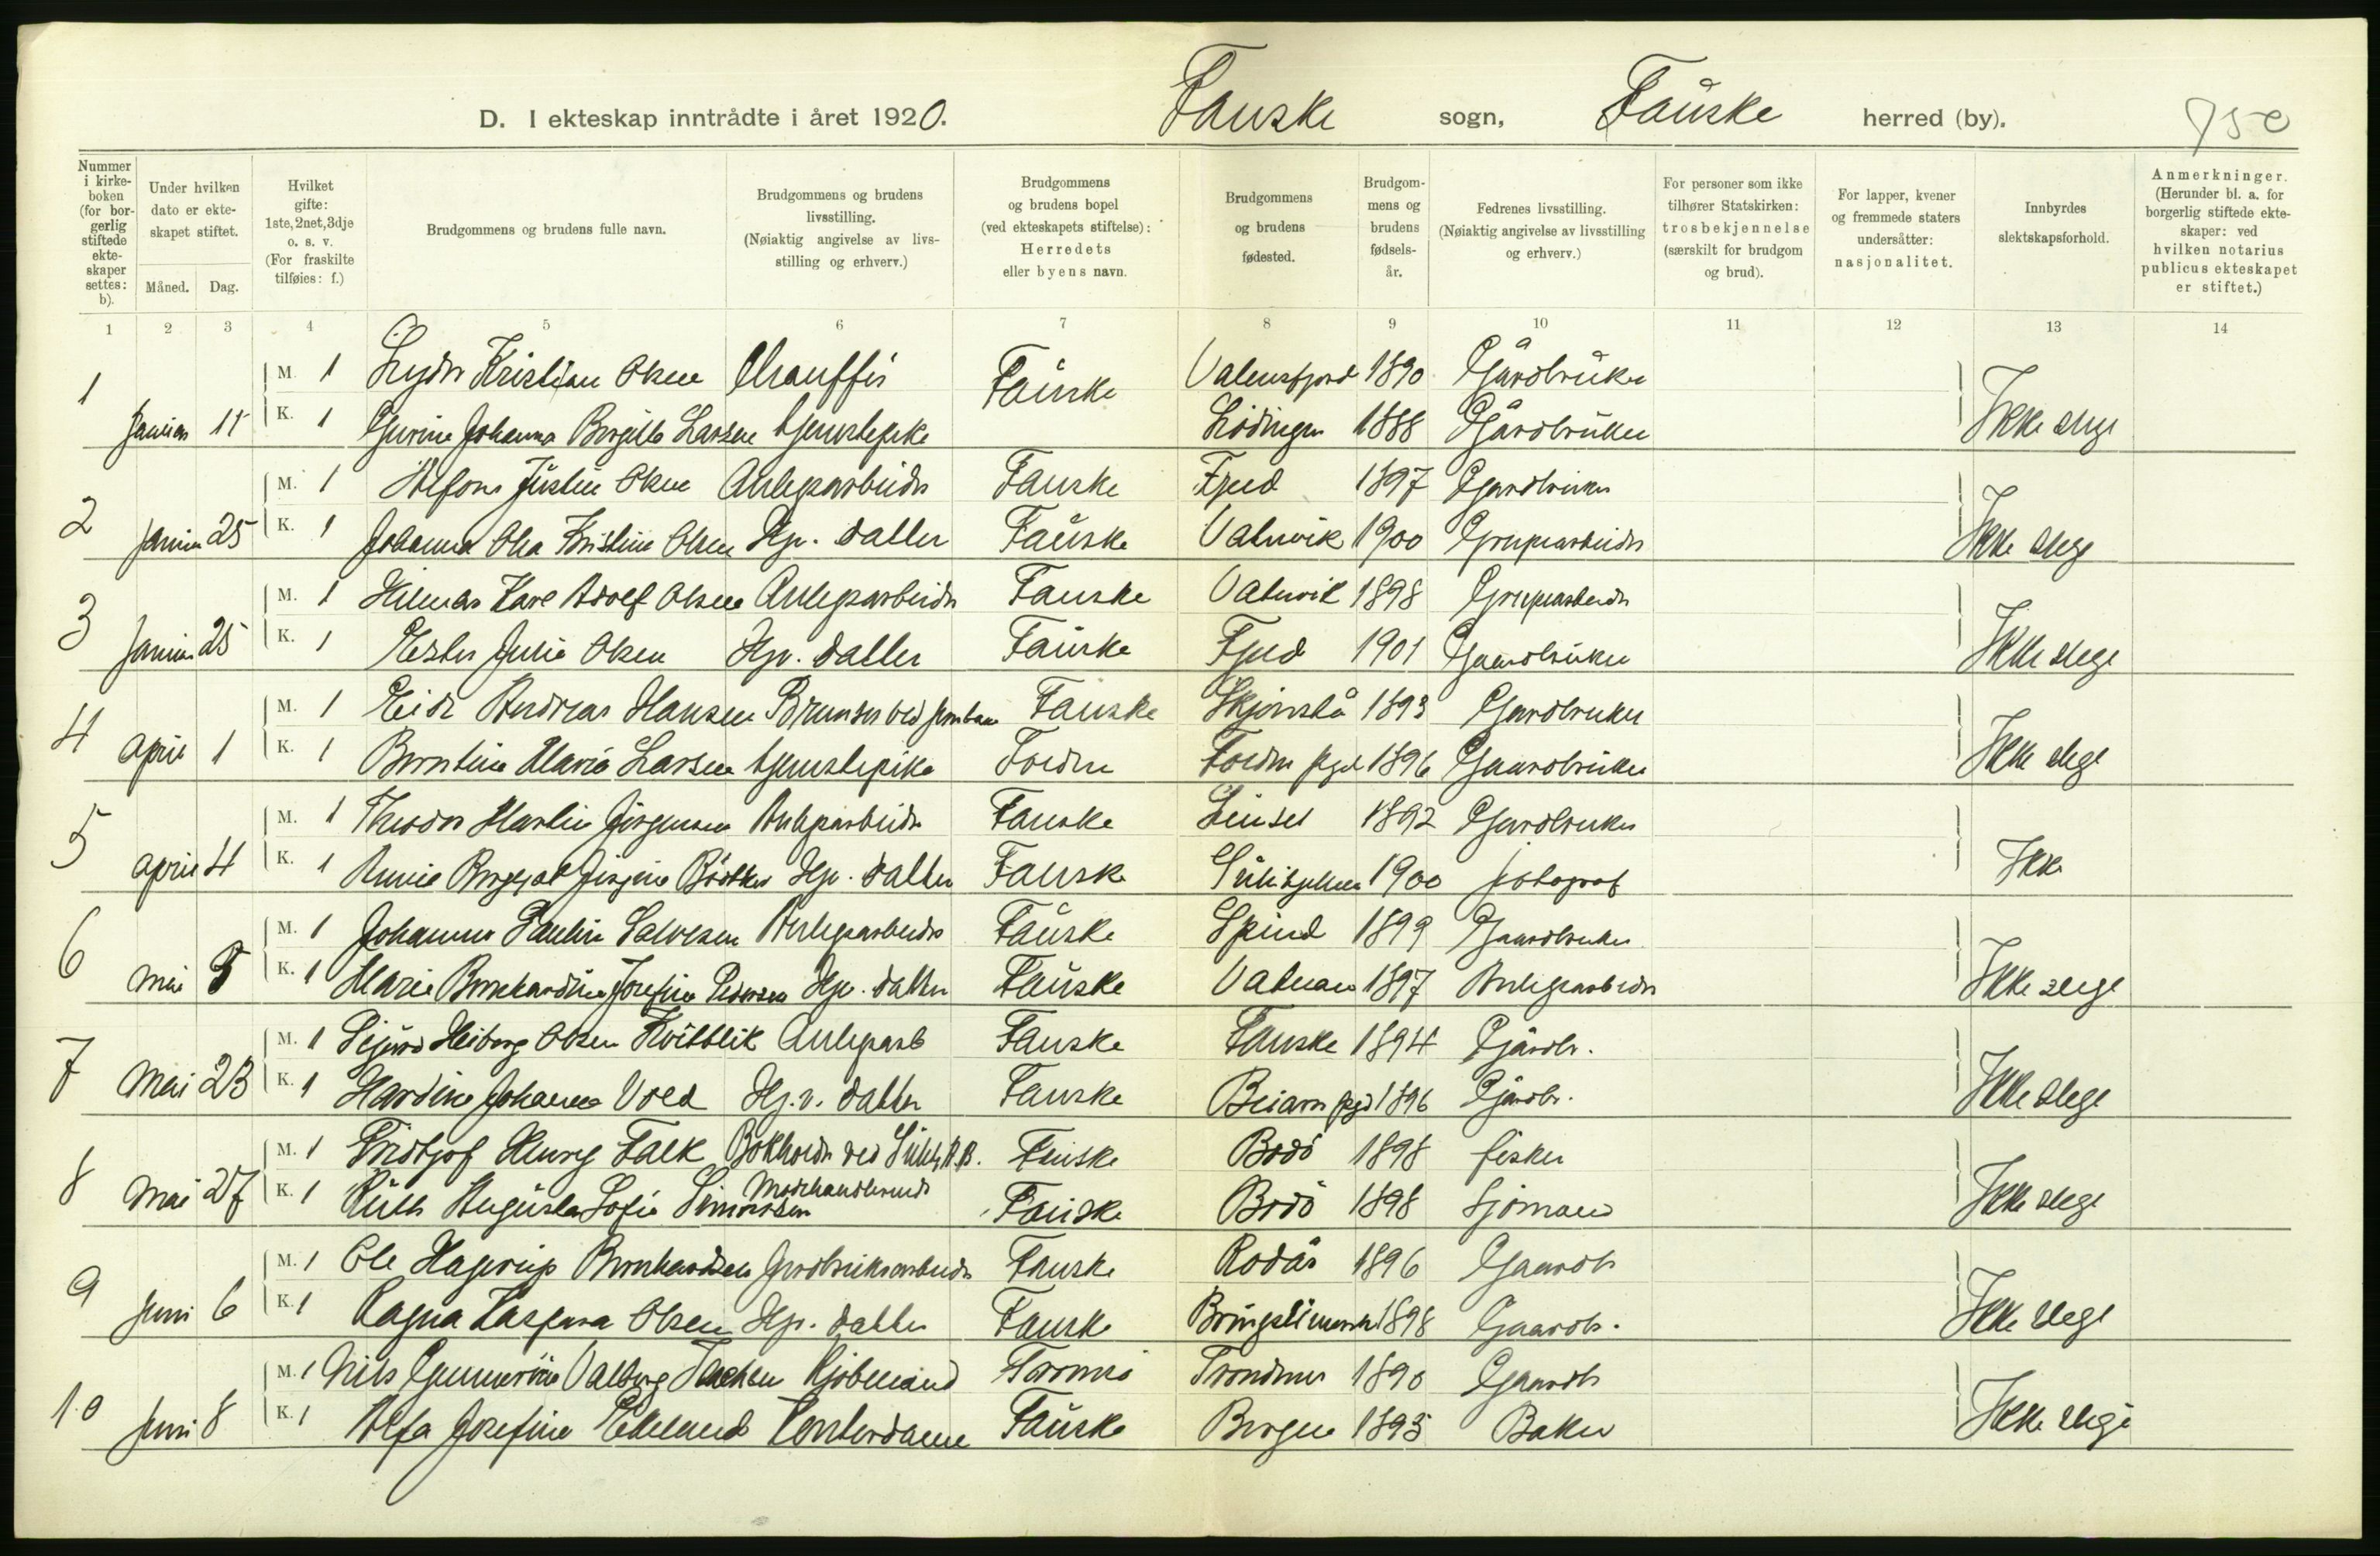 D. I ekteskap inntrådte i året 1920. Fauske sogn, Fauske herred (by).
Nummer i kirkeboken (for borgerlig stiftede ekteskaper settes: b).
Under hvilken dato er ekteskapet stiftet.
Måned. Dag.
Hvilket gifte: 1ste, 2net, 3dje o. s. v. (For fraskilte tilføies: f.)
Brudgommens og brudens fulle navn.
Brudgommens og brudens livsstilling. (Nøiaktig angivelse av livsstilling og erhverv.)
Brudgommens og brudens bopel (ved ekteskapets stiftelse): Herredets eller byens navn.
Brudgommens og brudens fødested.
Brudgommens og brudens fødselsår.
Fedrenes livsstilling. (Nøiaktig angivelse av livsstilling og erhverv.)
For personer som ikke tilhører Statskirken: trosbekjennelse (særskilt for brudgom og brud).
For lapper, kvener og fremmede staters undersåtter: nasjonalitet.
Innbyrdes slektskapsforhold.
Anmerkninger. (Herunder bl. a. for borgerlig stiftede ekteskaper: ved hvilken notarius publicus ekteskapet er stiftet.)
1 2 3 4 5 6 7 8 9 10 11 12 13 14
1 M. 1 Kristian Olsen Chauffør Fauske Valnesfjord 1890 Gårdbruker
Januar 11 K. 1 Johanna Larsen tjenestepike Lødingen 1888 Gårdbruker Ikke slegt
2 M. 1 Alfons Justin Olsen Anlegsarbeider Fauske Fjell 1897 Gardbruker
Januar 25 K. 1 Johanna Olea Kristine Olsen Hj. datter Fauske Vatnvik 1900 Grubearbeider Ikke slegt
3 M. 1 Hilmar Karl Adolf Olsen Anlegsarbeider Fauske Vatnvik 1898 Grubearbeider
Januar 25 K. 1 Ester Julie Olsen Hj. datter Fauske Fjell 1901 Gaardbruker Ikke slegt
4 M. 1 Eidi Andreas Hansen Fauske 1893 Gardbruker
April 1 K. 1 Berntine Maria Larsen tjenestepike Folden Folden pgd 1896 Gaardbruker Ikke slegt
5 M. 1 Theodor Martin Jørgensen Anlegsarbeider Fauske Leiset 1892 Gardbruker
April 4 K. 1 Hj. datter Fauske Sulitjelma 1900 fotograf Ikke
6 M. 1 Johannes Paulin Salvesen Anlegsarbeider Fauske Spind 1899 Gaardbruker
Mai K. 1 Marie Bernhardine Josefine Pedersen Hj. datter Fauske Vatnan 1897 Anlegsarbeider Ikke slegt
7 M. 1 Sigurd Heiberg Olsen Kvitblik Anlegsarb Fauske Fauske 1894 Gårdbr.
Mai 23 K. 1 Hardine Johanna Vold Hj. v. datter Fauske Beiarn pgd 1896 Gårdbr. Ikke slegt
8 M. 1 Fridtjof Henry Falk Bokholder ved Sulitj. A.B. Fauske Bodö 1898 fisker
Mai 27 K. 1 Ruth Augusta Sofie Simonsen Fauske Bodö 1898 Sjömand Ikke slegt
9 M. 1 Ole Hagerup Bernhardsen Gardbruksarbeider Fauske Rodås 1896 Gaardb
Juni 6 K. 1 Ragna Kaspara Olsen Hj. datter Fauske 1898 Gaardb. Ikke slegt
10 M. 1 Nils Valberg Kjöbmand Tromsö Trondenes 1890 Gaardb
Juni 8 K. 1 Alfa Josefine Edelund Kontordame Fauske Bergen 1893 Baker Ikke slegt